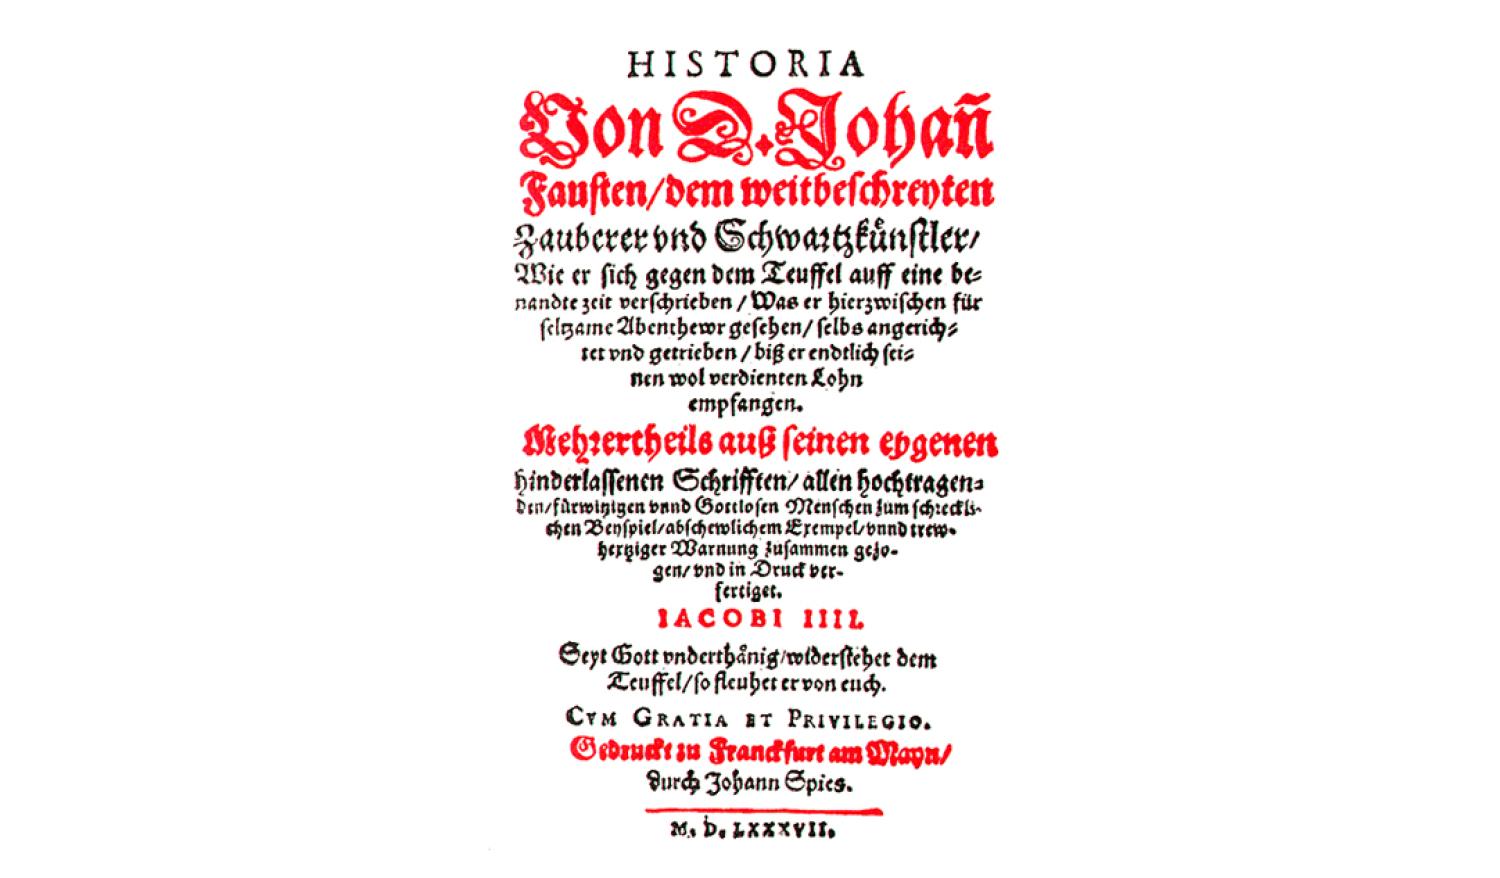 HISTORIA
Von D. Johañ
Fausten/dem weitbeschreyten
Zauberer vnd Schwartzkuͤnstler/
Wie er sich gegen dem Teuffel auff eine be⸗
nandte zeit verschrieben / Was er hierzwischen für
seltzame Abenthewr gesehen/ selbs angerich⸗
tet vnd getrieben / biß er endtlich sei⸗
nen wol verdienten Lohn
empfangen.
Mehrertheils auß seinen eygenen
hinderlassenen Schrifften/ allen hochtragen⸗
den/fürwitzigen vnnd Gottlosen Menschen zum schreckli⸗
chen Beyspiel/abschewlichem Exempel/vnnd trew⸗
hertziger Warnung zusammen gezo⸗
gen/ vnd in Druck ver⸗
fertiget.
IACOBI IIII.
Seyt Gott vnderthaͤnig/widerstehet dem
Teuffel/so fleuhet er von euch.
CVM GRATIA ET PRIVILEGIO.
Gedruckt zu Franckfurt am Mayn/
durch Johann Spies.
M. D. LXXXVII.